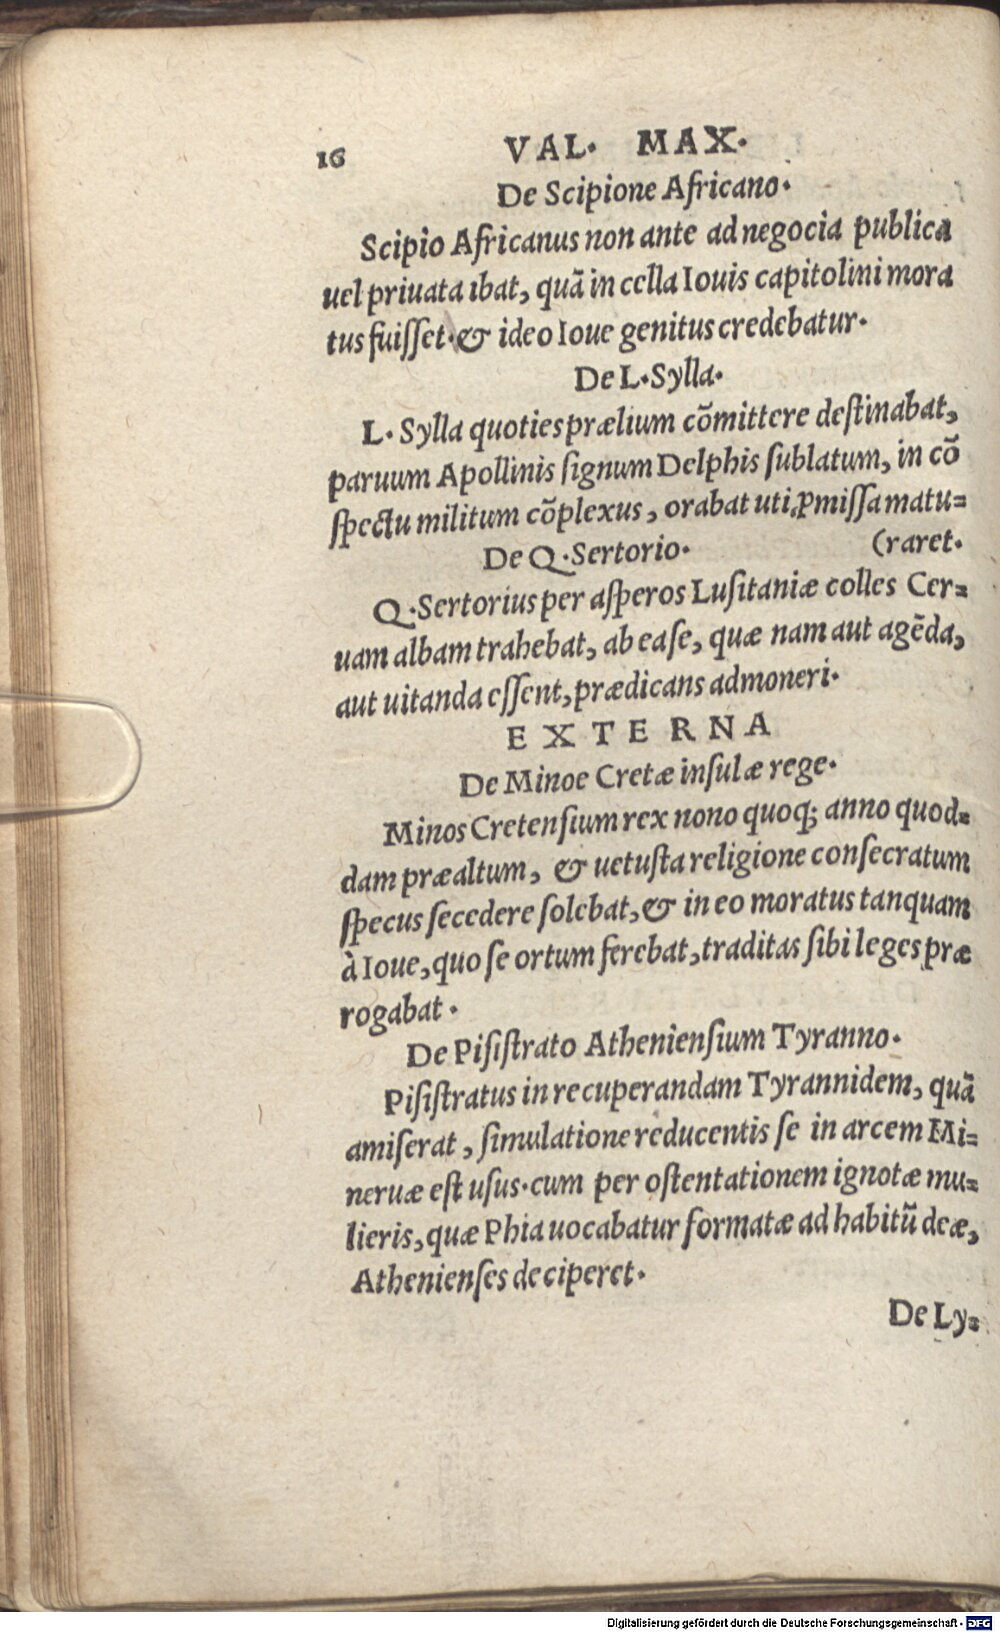 16 VAL· MAX·
De Scipione Africano·
Scipio Africanus non ante ad negocia publica
uel priuata ibat, quã in cella Iouis capitolini mora
tus fuiſſet·& ideo Ioue genitus credebatur·
De L·Sylla·
L· Sylla quoties prælium cõmittere deſtinabat,
paruum Apollinis ſignum Delphis ſublatum, in cõ
ſpectu militum cõplexus, orabat uti ꝓmiſſa matu⸗
De Q·Sertorio· (raret·
Q·Sertorius per aſperos Luſitaniæ colles Cer⸗
uam albam trahebat, ab ea ſe, quæ nam aut agẽda,
aut uitanda eſſent, prædicans admoneri·
EXTERNA
De Minoe Cretæ inſulæ rege·
Minos Cretenſium rex nono quoq; anno quod⸗
dam præaltum, & uetuſta religione conſecratum
ſpecus ſecedere ſolebat, & in eo moratus tanquam
à Ioue, quo ſe ortum ferebat, traditas ſibi leges præ
rogabat·
De Piſiſtrato Athenienſium Tyranno·
Piſiſtratus in recuperandam Tyrannidem, quã
amiſerat, ſimulatione reducentis ſe in arcem Mi⸗
neruæ eſt uſus·cum per oſtentationem ignotæ mu⸗
lieris, quæ Phia uocabatur formatæ ad habitũ deæ,
Athenienſes deciperet·
De Ly⸗
Digitalisierung gefördert durch die Deutsche Forschungsgemeinschaft - DFG